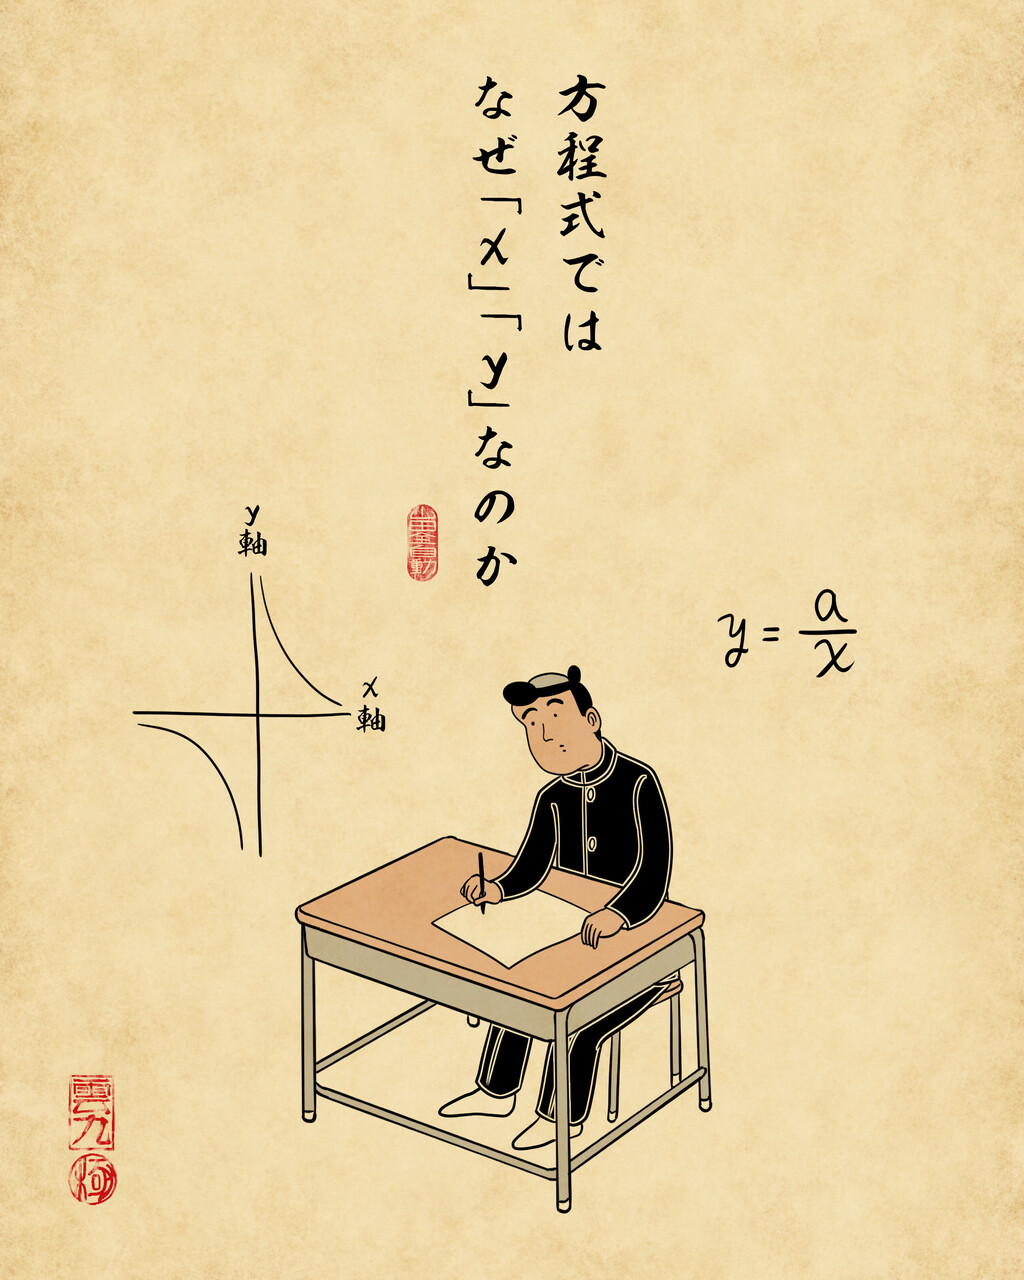 方程式では
なぜ「x」「y」なのか
y軸
x軸
y = a/x